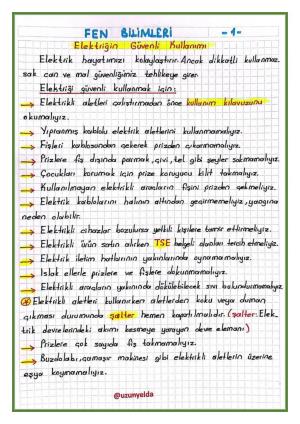 FEN BİLİMLERİ -1-
Elektriğin Güvenli Kullanımı
Elektrik hayatımızı kolaylaştırır. Ancak dikkatli kullanmaz
sak can ve mal güvenliğimiz tehlikeye girer.
Elektriği güvenli kullanmak için;
→ Elektrikli aletleri çalıştırmadan önce kullanım kılavuzunu
okumalıyız.
→ Yıpranmış kablolu elektrik aletlerini kullanmamalıyız.
→ Fişleri kablosundan çekerek prizden çıkarmamalıyız.
→ Prizlere fiş dışında parmak, çivi, tel gibi şeyler sokmamalıyız.
→ Çocukları korumak için prize koruyucu kilit takmalıyız.
→ Kullanılmayan elektrikli araçların fişini prizden çekmeliyiz.
→ Elektrik kablolarını halının altından geçirmemeliyiz, yangına
neden olabilir.
→ Elektrikli cihazlar bozulursa yetkili kişilere tamir ettirmeliyiz.
→ Elektrikli ürün satın alırken TSE belgeli olanları tercih etmeliyiz.
→ Elektrik iletim hatlarının yakınlarında oynamamalıyız.
→ Islak ellerle prizlere ve fişlere dokunmamalıyız.
→ Elektrikli araçların yakınında dökülebilecek sıvı bulundurmamalıyız.
Elektrikli aletleri kullanırken aletlerden koku veya duman
çıkması durumunda şalter hemen kapatılmalıdır. (Şalter: Elek-
trik devrelerindeki akımı kesmeye yarayan devre elemanı)
→ Prizlere çok sayıda fiş takmamalıyız.
→ Buzdolabı, çamaşır makinesi gibi elektrikli aletlerin üzerine
eşya koymamalıyız.
@uzunyelda